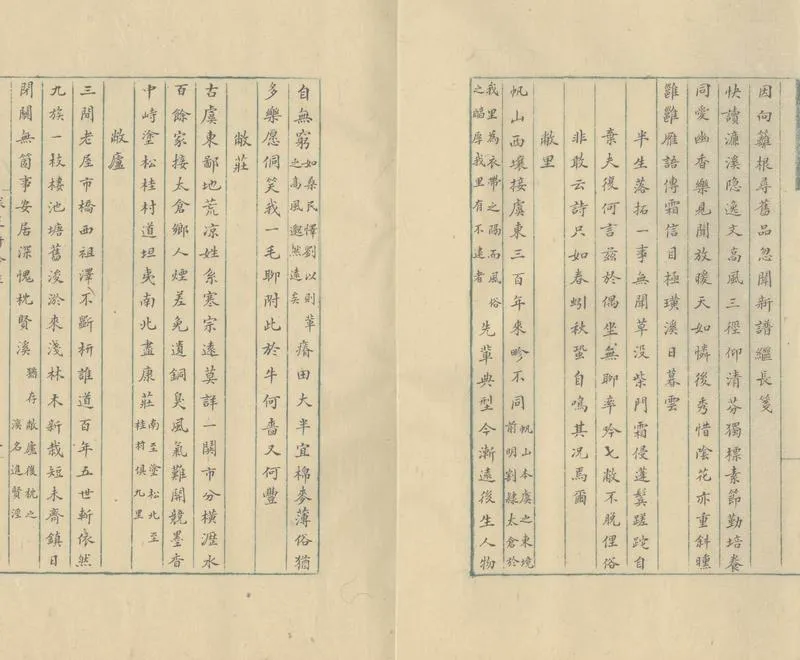 因向籬根尋舊品忽聞新譜繼長箋
快讀濂溪隐逸文高風三徑仰清芬獨標素節勤培養
同愛幽香樂見聞放暖天如憐後秀惜陰花亦重斜曛
雝雝雁語傳霜信目極璜溪日暮雲
半生落拓一事無聞草没柴門霜侵蓬鬢蹉跎自
棄夫復何言茲於偶坐無聊率吟七敝不脱俚俗
非敢云詩只如春蚓秋蛩自鳴其況焉爾
敝里
帆山西壤接虞東三百年來畛不同帆山本虞之東境前明割隸太倉於
我里為衣帶之隔而風俗之厚我里有不逮者先輩典型今漸遠後生人物
自無窮如桑民懌劉以則輩之高風邈然遠矣瘠田大半宜棉麥薄俗猶
多樂愿侗笑我一毛聊附此於牛何嗇又何豐
敝莊
古虞東鄙地荒凉姓系寒宗遠莫詳一閧市分横瀝水
百餘家接太倉鄉人煙差免遺銅臭風氣難開競墨香
中峙塗松桂村道坦夷南北盡康莊南至塗松北至桂村俱九里
敝廬
三間老屋市橋西祖澤不斷枅誰道百年五世斬依然
九族一枝棲池塘舊浚淤來淺林木新栽短未齊鎮日
閉關無箇事安居深愧枕賢溪猶存敝廬後枕之溪名進賢涇